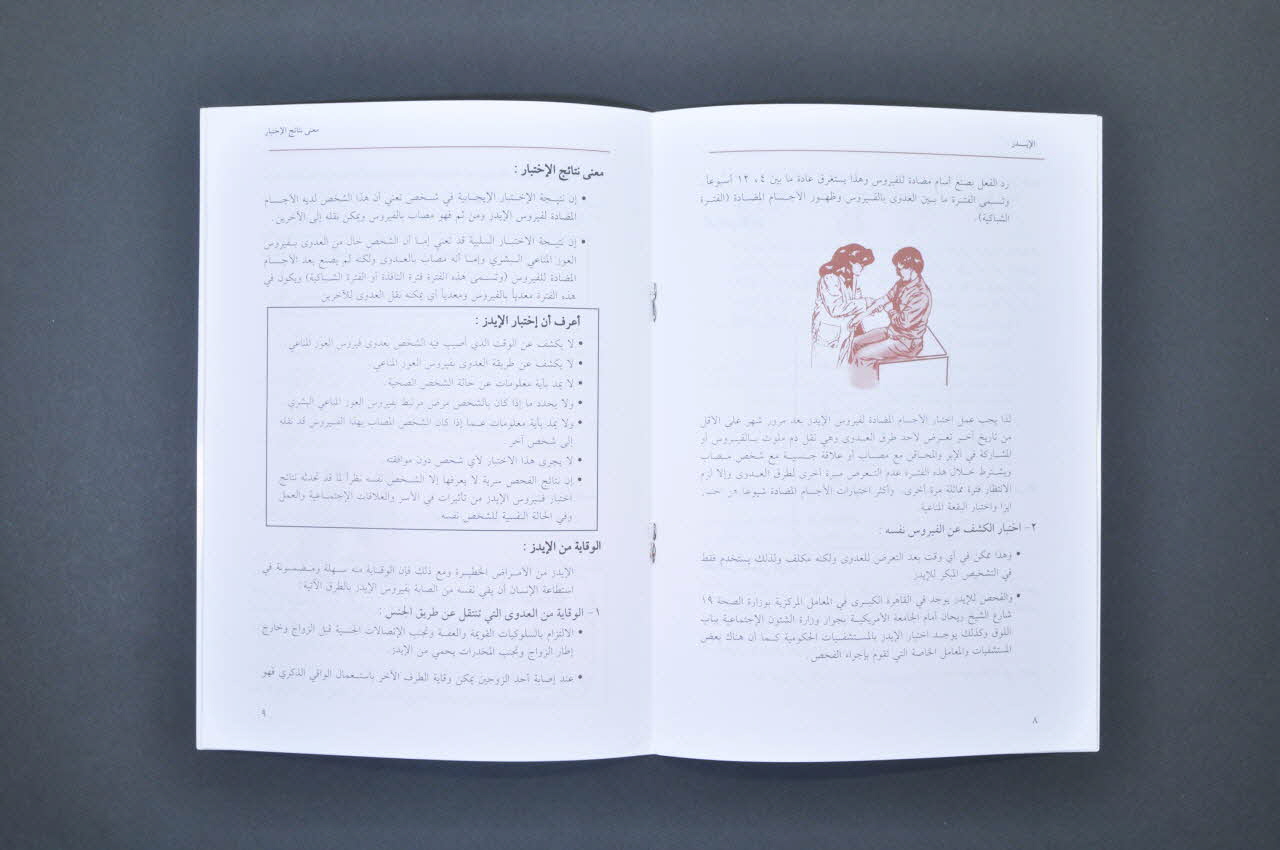 الإيــدز
رد الفعل بصنع أسام مضادة للفيروس وهذا يستغرق عادة ما بين ٤، ١٢ أسبوعاً
وتسمى الفترة ما بين العدوى بالفيروس وظهور الأجسام المضادة (الفترة
الشباكية).
لذا يجب عمل اختبار الأجسام المضادة لفيروس الإيدز بعد مرور شهر على الأقل
من تاريخ آخر تعرض لأحد طرق العدوى وهي نقل دم ملوث بالفيروس أو
المشاركة في الإبر والمحاقن مع مصاب أو علاقة جنسية مع شخص مصاب
ويشترط خلال هذه الفترة عدم التعرض مرة أخرى لطرق العدوى وإلا لزم
الانتظار فترة مماثلة مرة أخرى. وأكثر اختبارات الأجسام المضادة شيوعاً
ايزا واختبار البقعة المناعية.
٢- اختبار الكشف عن الفيروس نفسه :
• وهذا ممكن في أي وقت بعد التعرض للعدوى ولكنه مكلف ولذلك يستخدم فقط
في التشخيص المبكر للإيدز
• والفحص للإيدز يوجد في القاهرة الكبرى في المعامل المركزية بوزارة الصحة ١٩
شارع الشيخ ريحان أمام الجامعة الأمريكية بجوار وزارة الشئون الإجتماعية بباب
اللوق وكذلك يوجد اختبار الإيدز بالمستشفيات الحكومية كما أن هناك بعض
المستشفيات والمعامل الخاصة التي تقوم بإجراء الفحص.
٨
معنى نتائج الإختبار
معنى نتائج الإختبار :
• إن نتيجة الإختبار الإيجابية في شخص تعني أن هذا الشخص لديه الأجسام
المضادة لفيروس الإيدز ومن ثم فهو مصاب بالفيروس ويمكن نقله إلى الآخرين.
• إن نتيجة الاختبار السلبية قد تعني إما أن الشخص خال من العدوى بفيروس
العوز المناعي البشري وإما أنه مصاب بالعدوى ولكنه لم يصنع بعد الأجسام
المضادة للفيروس (وتسمى هذه الفترة فترة النافذة أو الفترة الشباكية) ويكون في
هذه الفترة معدياً بالفيروس ومعدياً أي يمكنه نقل العدوى للآخرين
أعرف أن إختبار الإيدز :
• لا يكشف عن الوقت الذي أصيب فيه الشخص بعدوى فيروس العوز المناعي
• لا يكشف عن طريقة العدوى بفيروس العوز المناعي.
• لا يمد بأية معلومات عن حالة الشخص الصحية.
• ولا يحدد ما إذا كان بالشخص مرض مرتبط بفيروس العوز المناعي البشري
• ولا يمد بأية معلومات عما إذا كان الشخص المصاب بهذا الفيروس قد نقله
إلى شخص آخر
• لا يجرى هذا الاختبار لأي شخص دون موافقته.
• إن نتائج الفحص سرية لا يعرفها إلا الشخص نفسه نظراً لما قد تحدثه نتائج
اختبار فيروس الإيدز من تأثيرات في الأسر والعلاقات الإجتماعية والعمل
وفي الحالة النفسية للشخص نفسه
الوقاية من الإيدز :
الإيدز من الأمراض الخطيرة ومع ذلك فإن الوقاية منه سهلة ومضمونة في
استطاعة الإنسان أن يقي نفسه من الصابة بفيروس الإيدز بالطرق الآتية :
١- الوقاية من العدوى التي تنتقل عن طريق الجنس :
• الالتزام بالسلوكيات القويمة والعفة وتجنب الإتصالات الجنسية قبل الزواج وخارج
إطار الزواج وتجنب المخدرات يحمي من الإيدز.
• عند إصابة أحد الزوجين يمكن وقاية الطرف الآخر باستعمال الواقي الذكري فهو
٩